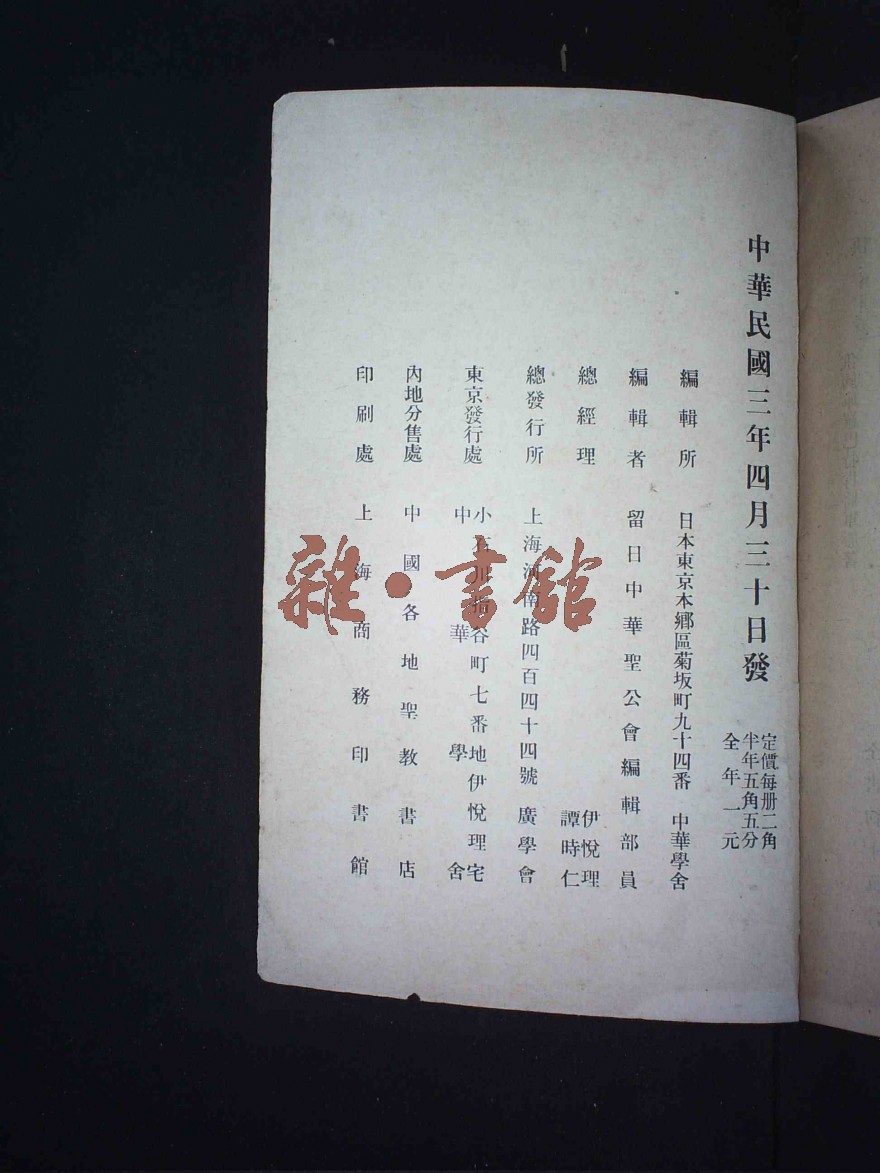 中華民國三年四月三十日發
定價每册二角
半年五角五分
全年一元
編輯所 日本東京本鄉區菊坂町九十四番 中華學舍
編輯者 留日中華聖公會編輯部員
總經理 伊悅理
譚時仁
總發行所 上海河南路四百四十四號 廣學會
東京發行處 小石川指谷町七番地伊悅理宅
中華學舍
內地分售處 中國各地聖教書店
印刷處 上海商務印書館
雜·書館